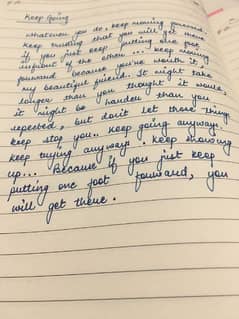 Keep Going
whatever you do, keep moving forward
keep trusting that you will get there
if you just keep putting one foot
infront of the other ... keep moving
forward because you're worth it,
my beautiful friend. It might take
longer than you thought it would,
it might be harder than you
expected, but don't let these things
keep stop you.. keep going anyways.
keep trying anyways. keep showing
up... Because if you just keep
putting one foot forward, you
will get there.